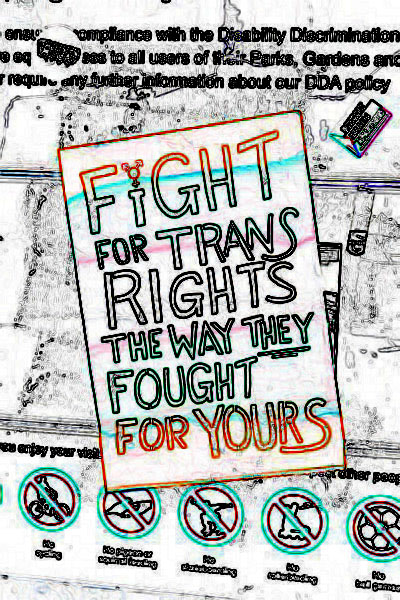 compliance with the Disability Discrimination
to all users of their Parks, Gardens and
require any further information about our DDA policy
FIGHT
FOR TRANS
RIGHTS
THE WAY THEY
FOUGHT
FOR YOURS
you enjoy your visit
other people
No
cycling
No pigeon or
squirrel feeding
No
skateboarding
No
rollerblading
No
ball games